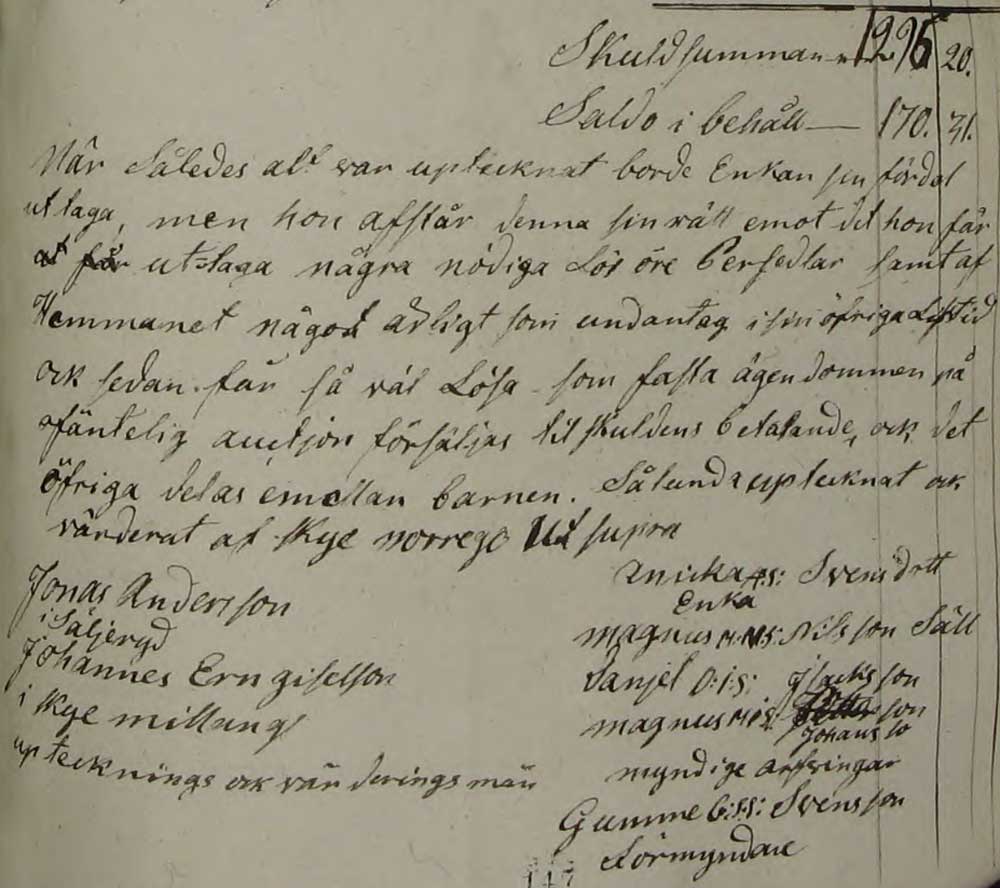 Skuldsumman 1296 20.
Saldo i behåll — 170. 31.
När Således alt var uptecknat borde Enkan sin fördel
uttaga, men hon afstår denna sin rätt emot det hon får
at får uttaga några nödiga Lös öre Persedlar samt af
Hemmanet något årligt som undantag i sin öfriga Lifstid
ock sedan får så väl Lösa som fasta ägendommen på
ofäntelig auctjon försäljas til skuldens betalande, ock det
öfriga delas emellan barnen. Sålunda uptecknat ock
värderat af Skye norrego Ut supra
Jonas Andersson
i Säljeryd
Johannes Erngiselson
i Skye millang
uptecknings ock värderings män
Anicka A:S: Svensdott
Enka
magnus M:N:S: Nilsson Säll
Danjel D:I:S: Isacksson
magnus M:I:S: son
Johanso
myndige arfvingar
Gumme G:S:S: Svensson
Förmyndare
147